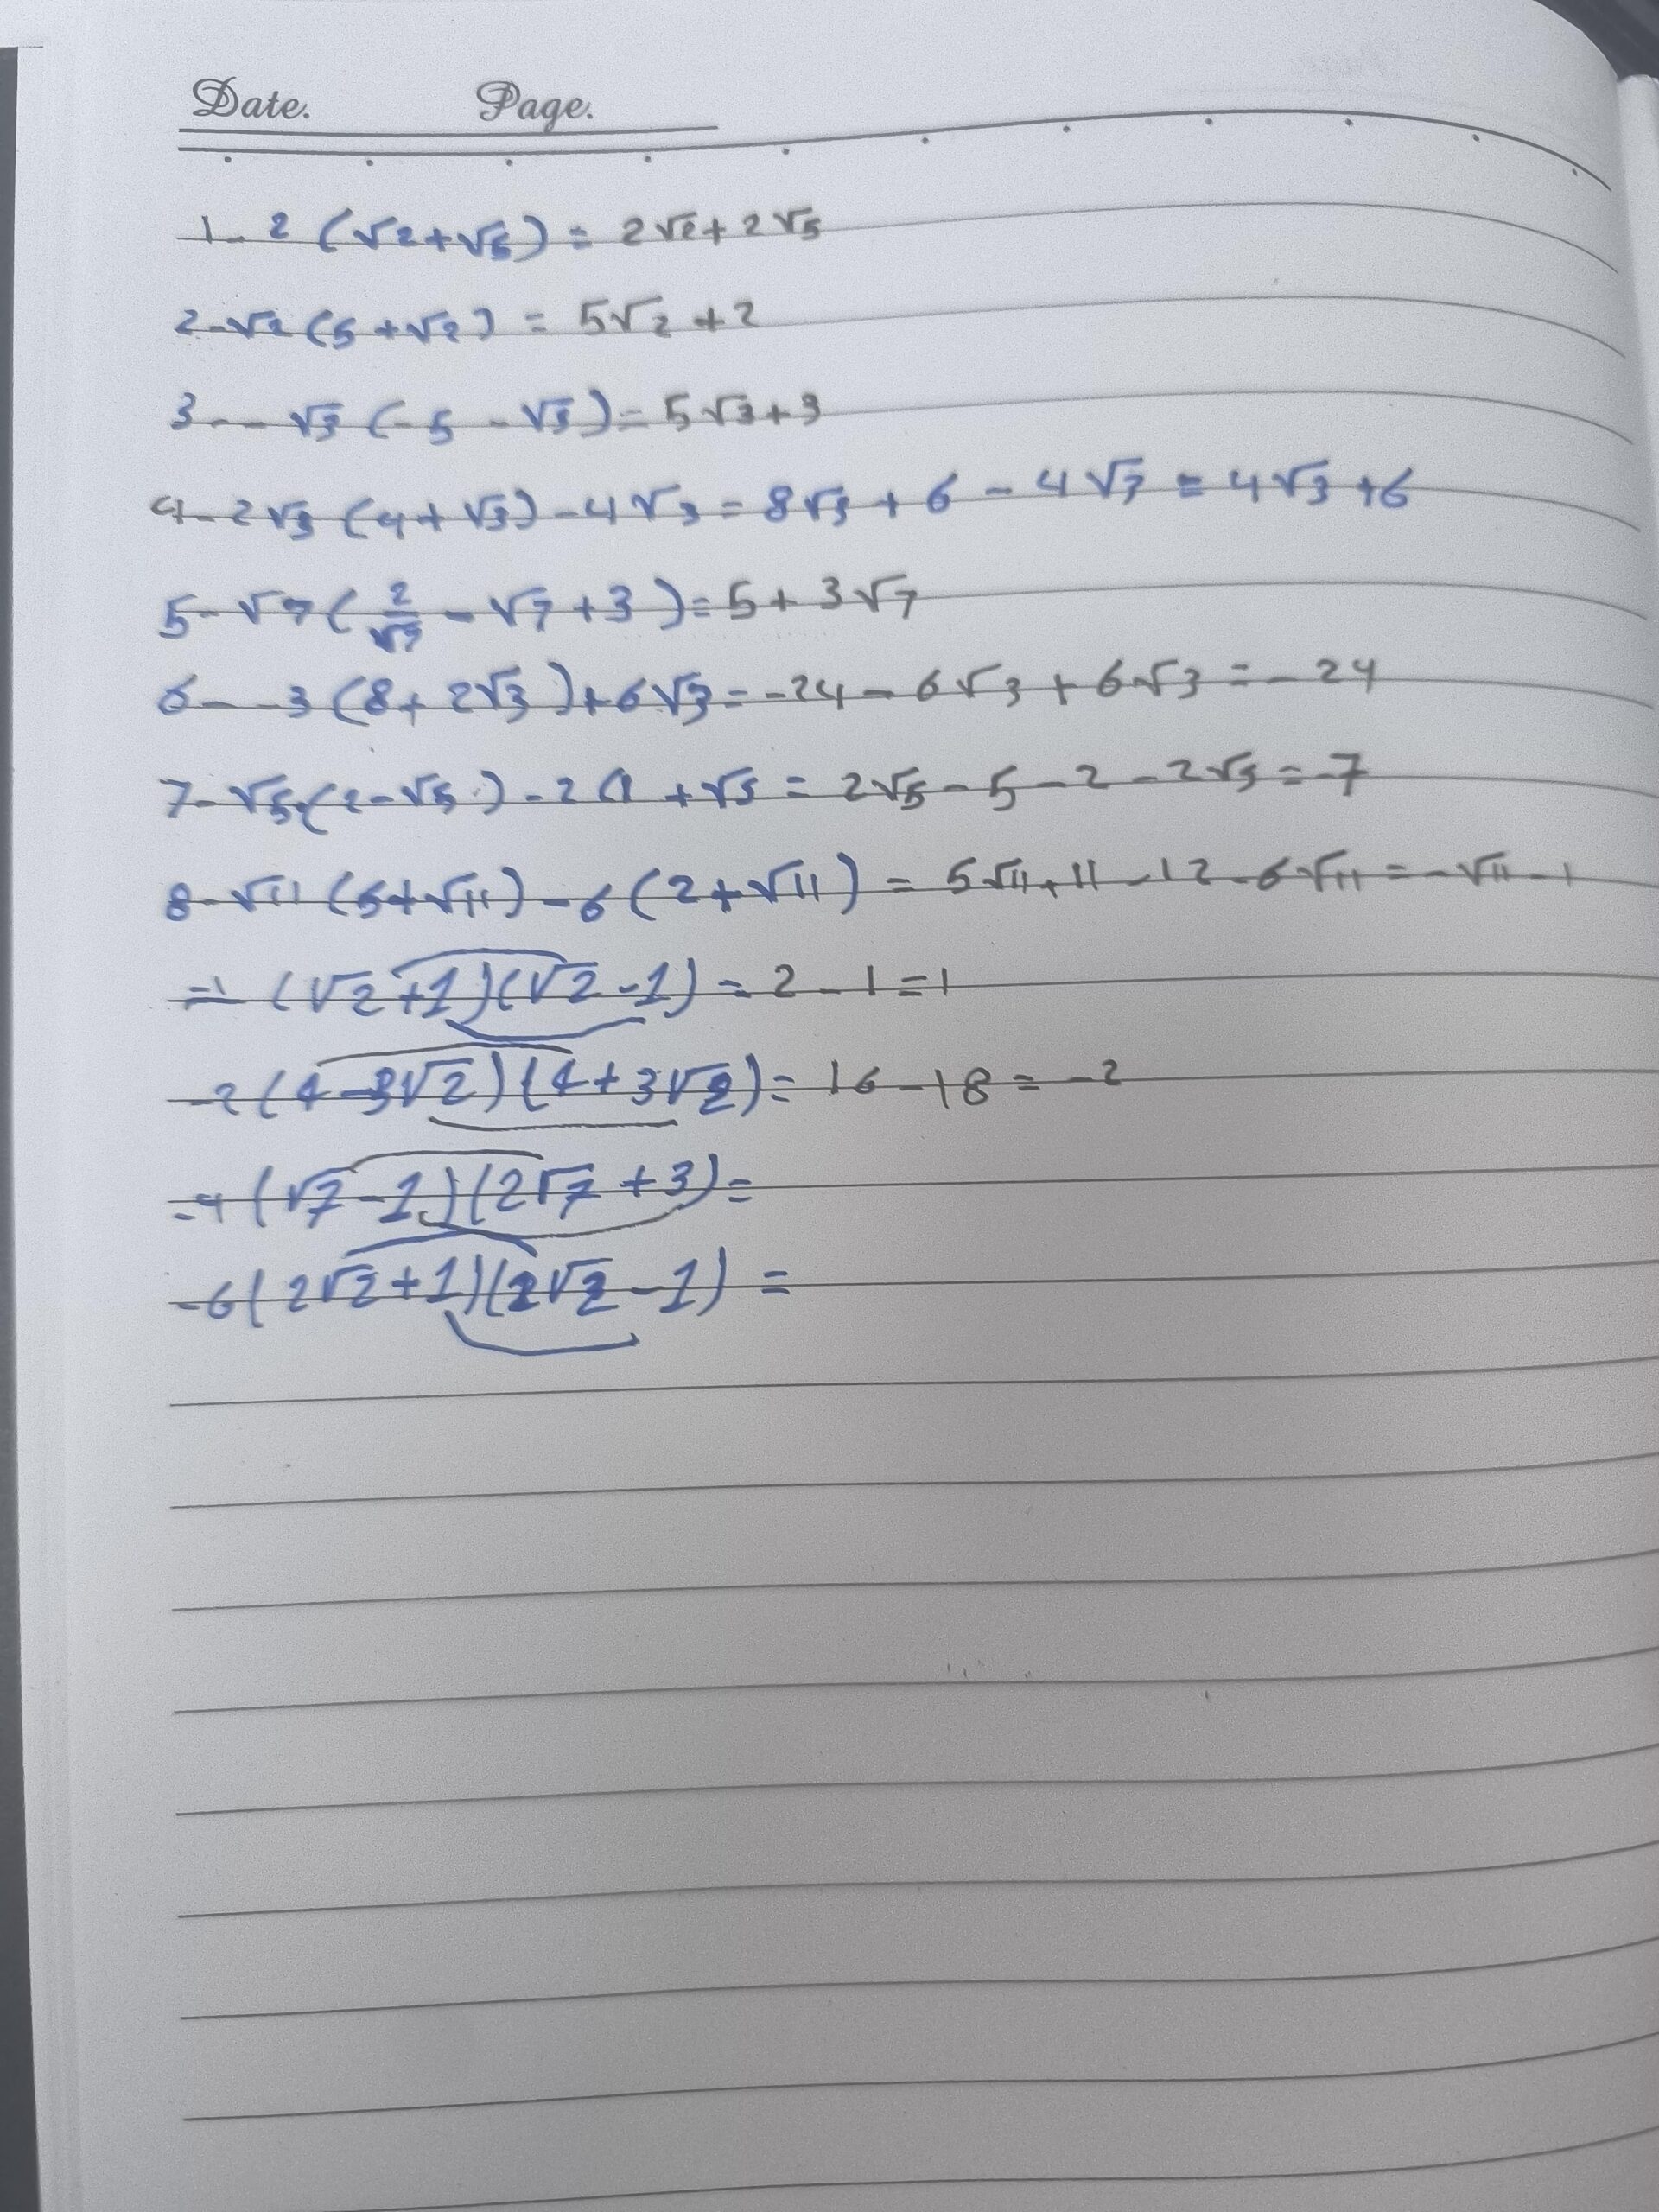 Date. Page.
1- 2 (√2+√5) = 2√2+2√5
2-√2 (5+√2) = 5√2 +2
3- -√3 (-5 -√3) = 5√3+3
4- 2√3 (4+√3) -4√3 = 8√3 + 6 - 4√3 = 4√3 +6
5- √7 (2/√7 - √7 +3) = 5+ 3√7
6- -3 (8+ 2√3) +6√3 = -24 - 6√3 + 6√3 = -24
7- √5 (2-√5) -2 (1 +√5 = 2√5 - 5 - 2 - 2√5 = -7
8- √11 (5+√11) -6 (2+√11) = 5√11 + 11 -12 -6√11 = -√11 -1
=1 (√2+1)(√2-1) = 2 - 1 = 1
-2 (4-3√2)(4+3√2) = 16 -18 = -2
-4 (√7-1)(2√7 +3) =
-6 (2√2+1)(2√2-1) =